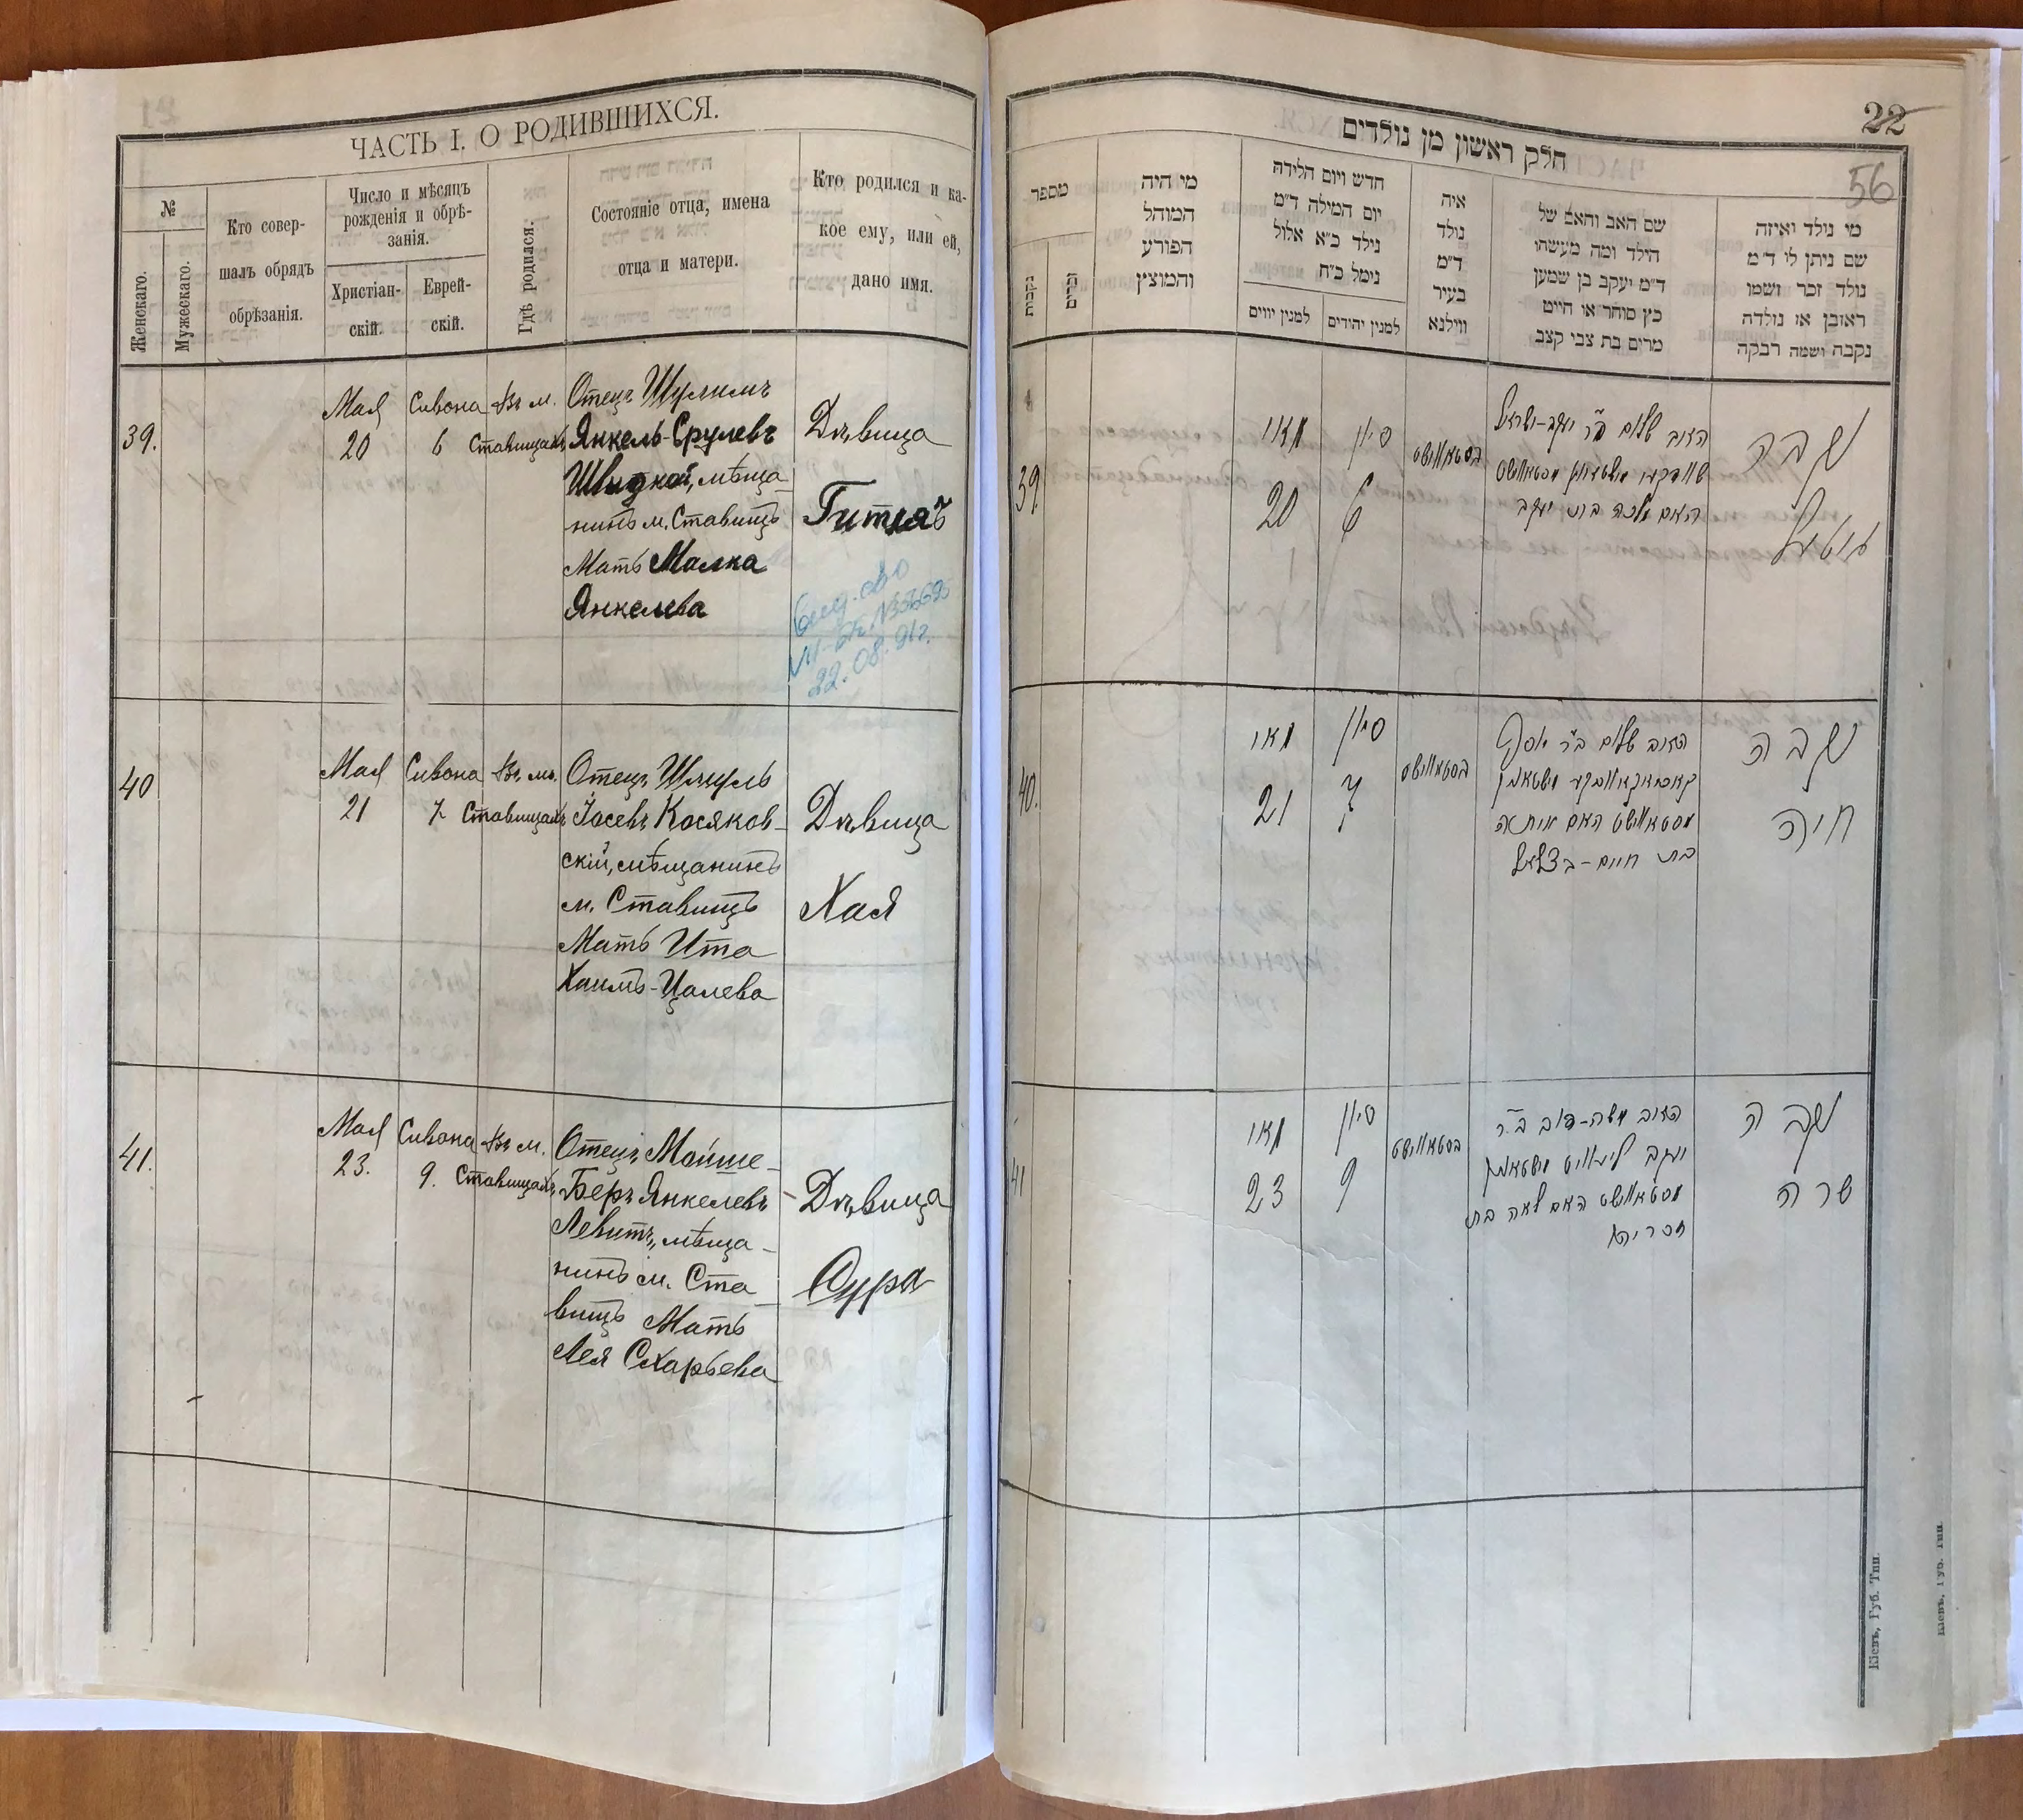 ЧАСТЬ I. О РОДИВШИХСЯ.
№
Женскаго.
Мужескаго.
Кто совер-
шалъ обрядъ
обрѣзанія.
Число и мѣсяцъ
рожденія и обрѣ-
занія.
Христіан-
скій.
Еврей-
скій.
Гдѣ родился.
Состояніе отца, имена
отца и матери.
Кто родился и ка-
кое ему, или ей,
дано имя.
39.
Мая
20
Сивона
6
Въ м.
Ставищахъ
Отецъ Шулимъ
Янкель-Срулевъ
Швидкой, мѣща-
нинъ м. Ставищъ
Мать Малка
Янкелева
Дѣвица
Гитля
22.08.91г.
40
Мая
21
Сивона
7
Въ м.
Ставищахъ
Отецъ Шмуль
Іосевъ Косяков-
скій, мѣщанинъ
м. Ставищъ
Мать Ита
Хаимъ-Цалева
Дѣвица
Хая
41.
Мая
23.
Сивона
9.
Въ м.
Ставищахъ
Отецъ Мойше-
Беръ Янкелевъ
Левитъ, мѣща-
нинъ м. Ста-
вищъ Мать
Лея Схарьева
Дѣвица
Сура
22
56
חלק ראשון מן נולדים
מספר
נקבות
זכרים
מי היה
המוהל
הפורע
והמוצץ
חדש ויום הלידה
יום המילה ד״מ
נילד כ״א אלול
נימל כ״ח
למנין יווים
למנין יהודים
איה
נולד
ד״מ
בעיר
ווילנא
שם האב והאם של
הילד ומה מעשהו
ד״מ יעקב בן שמען
כץ סוחר או חייט
מרים בת צבי קצב
מי נולד ואיזה
שם ניתן לו ד״מ
נולד זכר ושמו
ראובן או נולדה
נקבה ושמה רבקה
39.
מאי
20
סיון
6
בסטאווישט
האב שלום ב״ר יעקב-ישראל
האם מלכה בת יעקב
נקבה
גיטל
40.
מאי
21
סיון
7
בסטאווישט
האב שלום ב״ר יוסף
מסטאווישט האם איטה
בת חיים-בצלאל
נקבה
חיה
41
מאי
23
סיון
9
בסטאווישט
האב משה-דוב ב״ר
יעקב לעוויט
מסטאווישט האם לאה בת
זכריה
נקבה
שרה
Кіевъ, Губ. Тип.
Кіевъ, Губ. Тип.